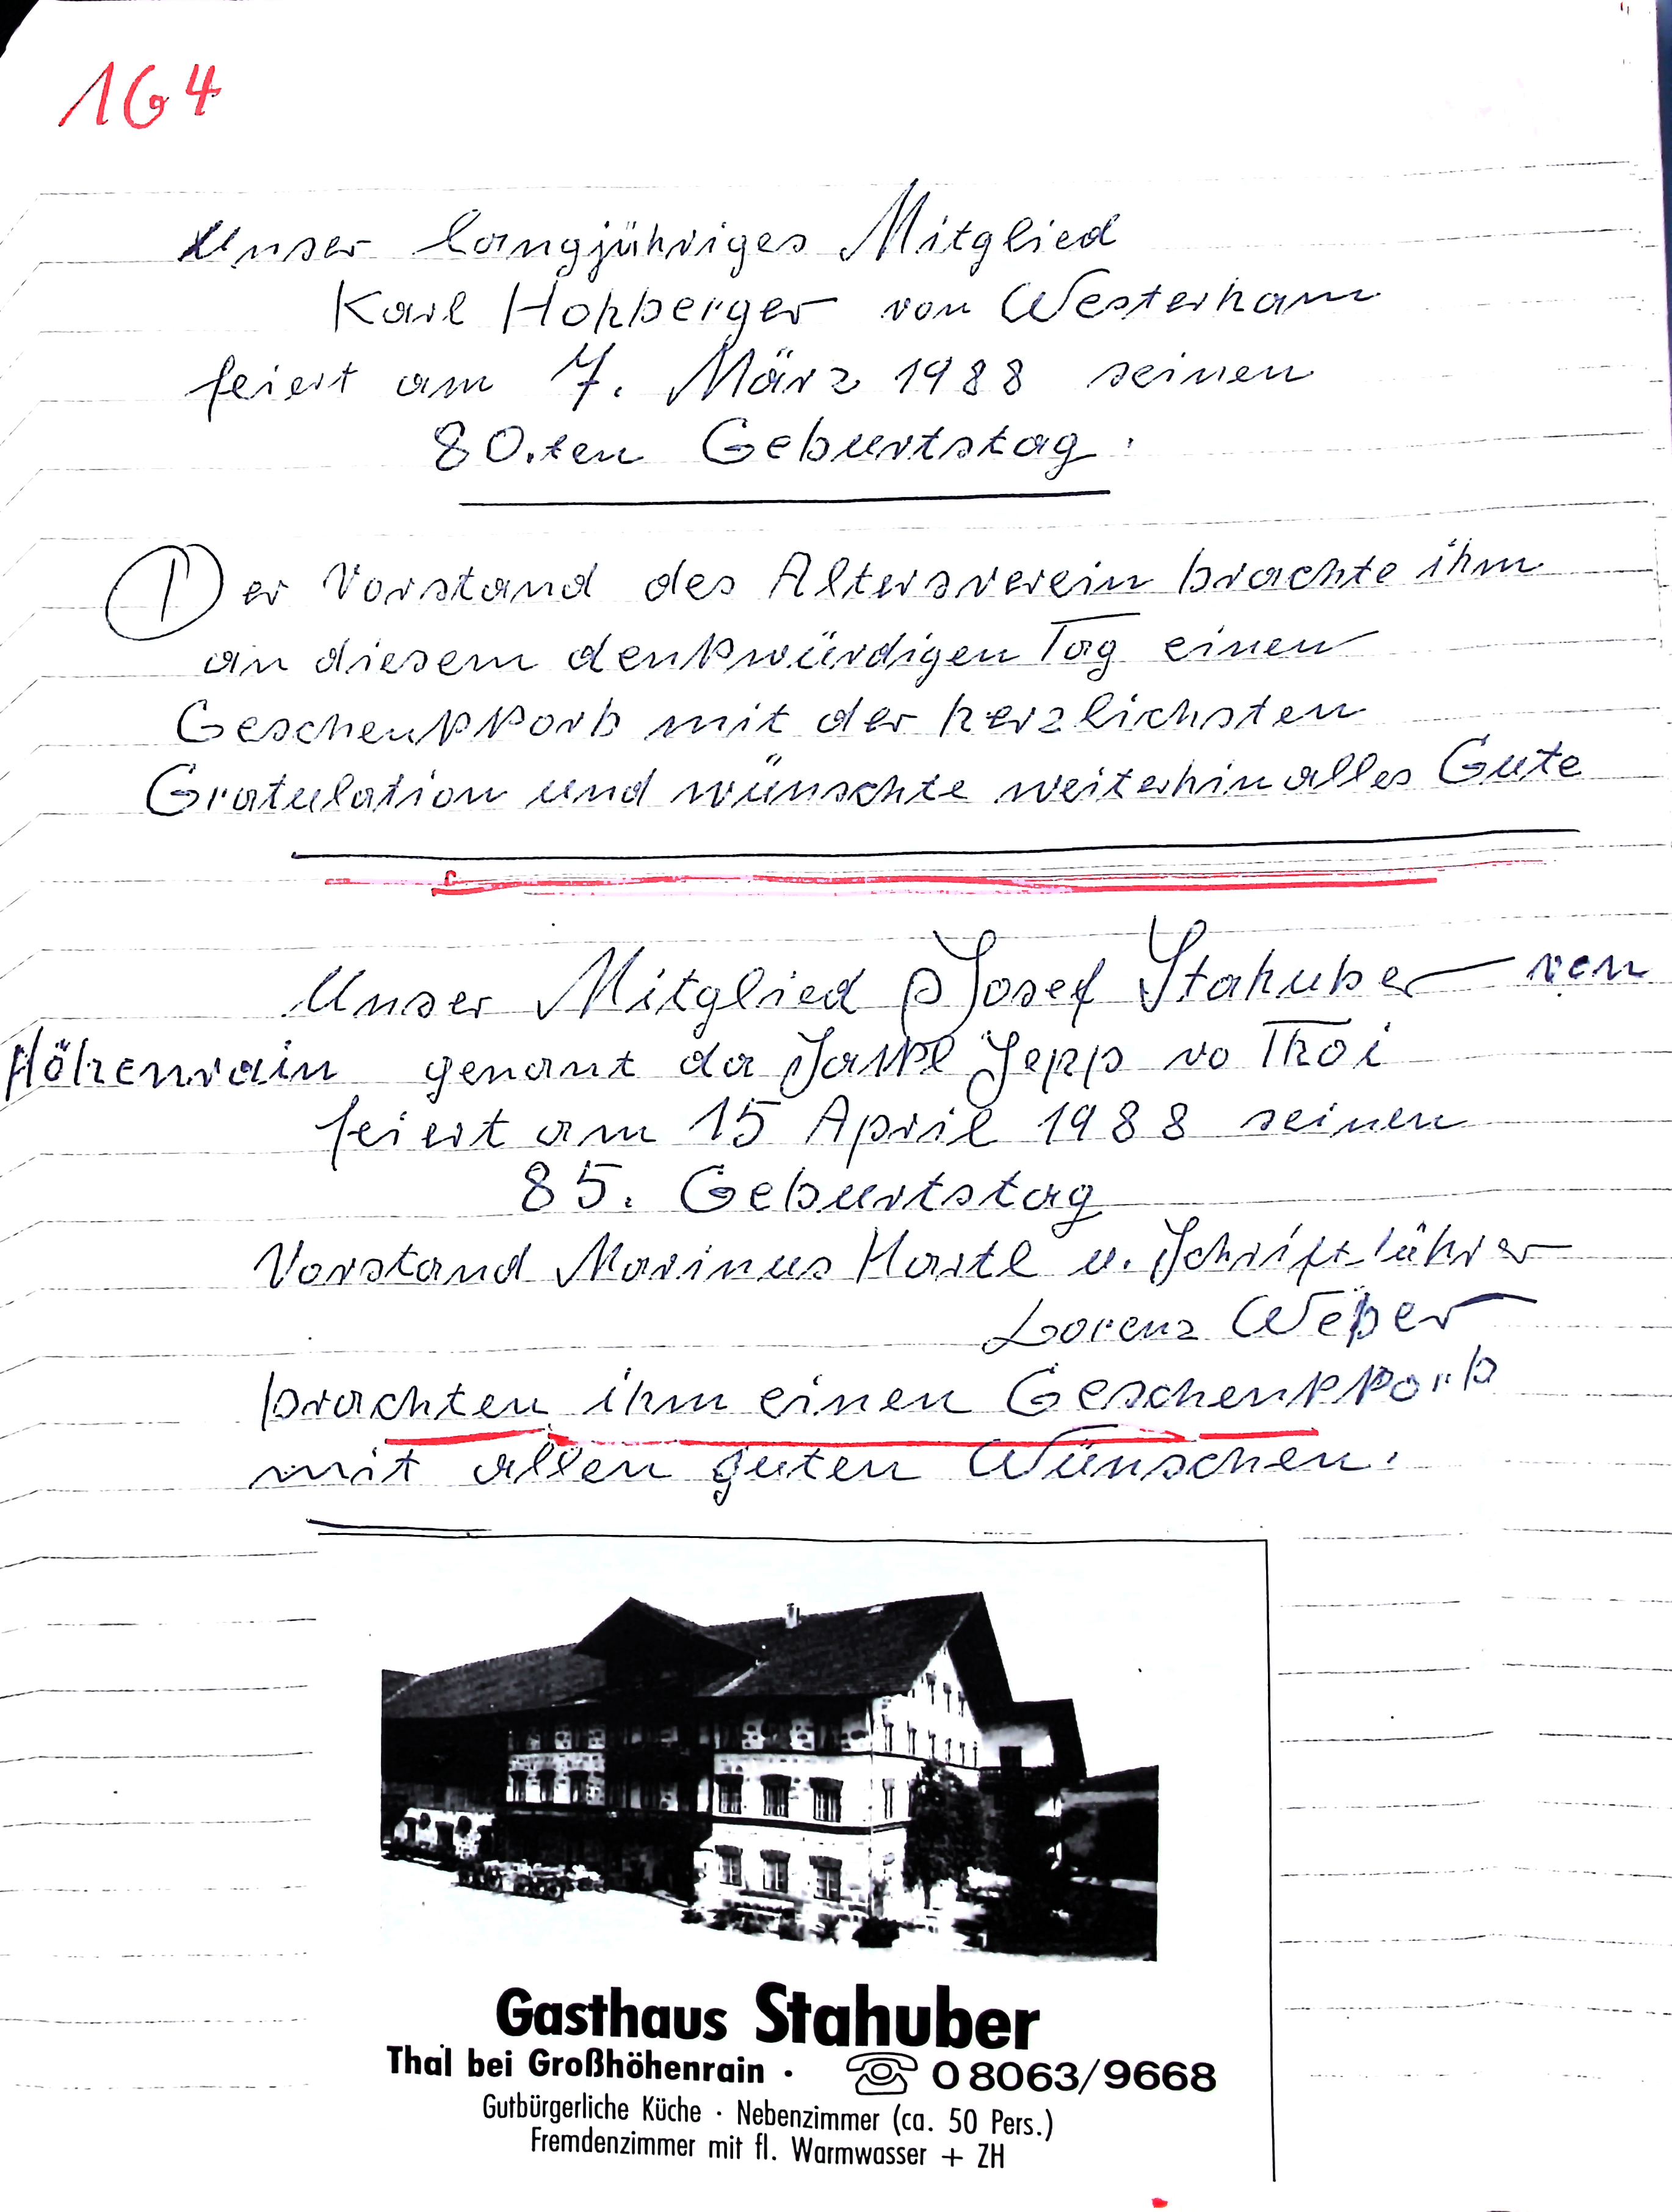 164
Unser langjähriges Mitglied
Karl Hohberger von Westerham
feiert am 7. März 1988 seinen
80.ten Geburtstag.
Der Vorstand des Altersverein brachte ihm
an diesem denkwürdigen Tag einen
Geschenkkorb mit der herzlichsten
Gratulation und wünschte weiterhin alles Gute
Unser Mitglied Josef Stahuber von
Höhenrain genant da Jackl Sepp vo Thoi
feiert am 15 April 1988 seinen
85. Geburtstag
Vorstand Marinus Hartl u. Schriftführer
Lorenz Weber
brachten ihm einen Geschenkkorb
mit allen guten Wünschen.
Gasthaus Stahuber
Thal bei Großhöhenrain · ☎ 0 8063/9668
Gutbürgerliche Küche · Nebenzimmer (ca. 50 Pers.)
Fremdenzimmer mit fl. Warmwasser + ZH